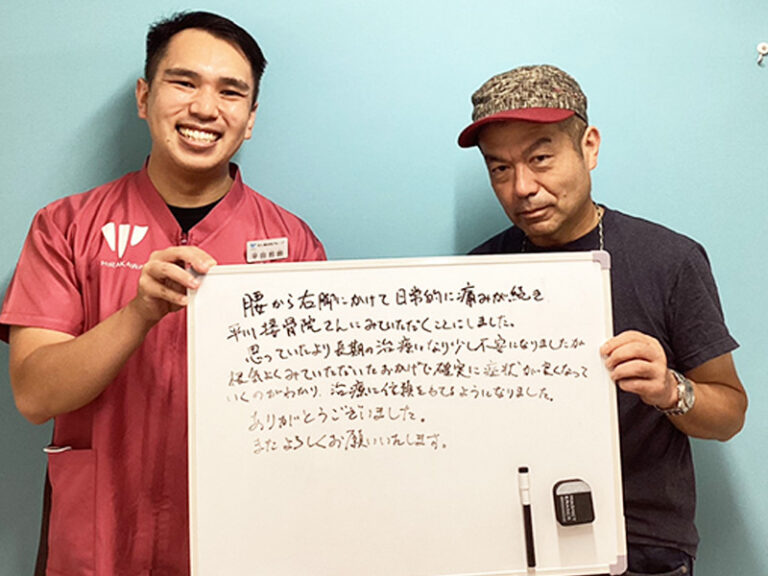 HIRAKAWA
腰から右脚にかけて日常的に痛みが続き
平川接骨院さんにみていただくことにしました。
思っていたより長期の治療になり少し不安になりましたが
根気よくみていただいたおかげで確実に症状が良くなって
いくのがわかり、治療に信頼をもてるようになりました。
ありがとうございました。
またよろしくお願いいたします。